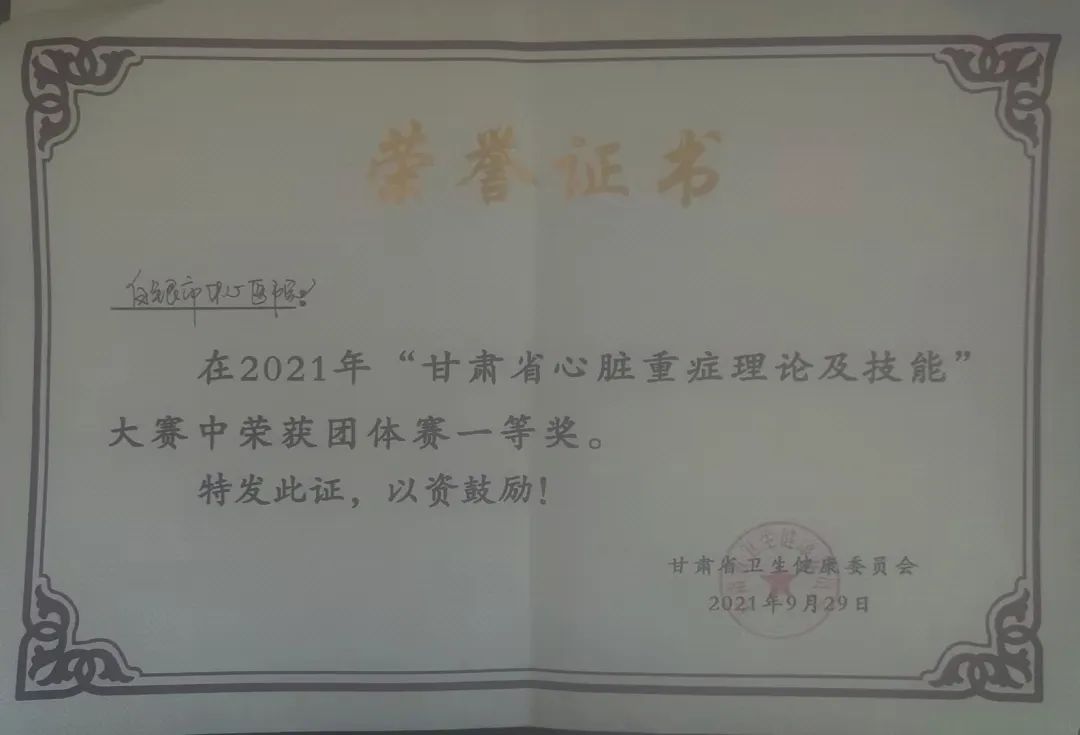 荣誉证书
白银市中心医院：
在2021年“甘肃省心脏重症理论及技能”
大赛中荣获团体赛一等奖。
特发此证，以资鼓励！
甘肃省卫生健康委员会
2021年9月29日